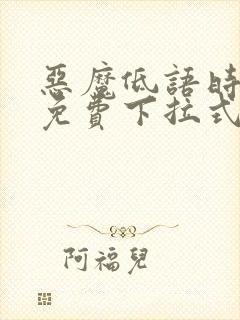 惡魔低語時
免費下拉式
阿福兒